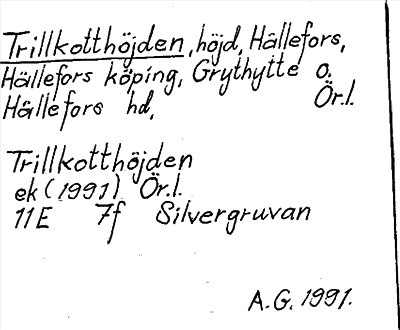 Trillkotthöjden, höjd, Hällefors,
Hällefors köping, Grythytte o.
Hällefors hd, Ör.l.
Trillkotthöjden
ek (1991) Ör.l.
11E 7f Silvergruvan
A.G. 1991.